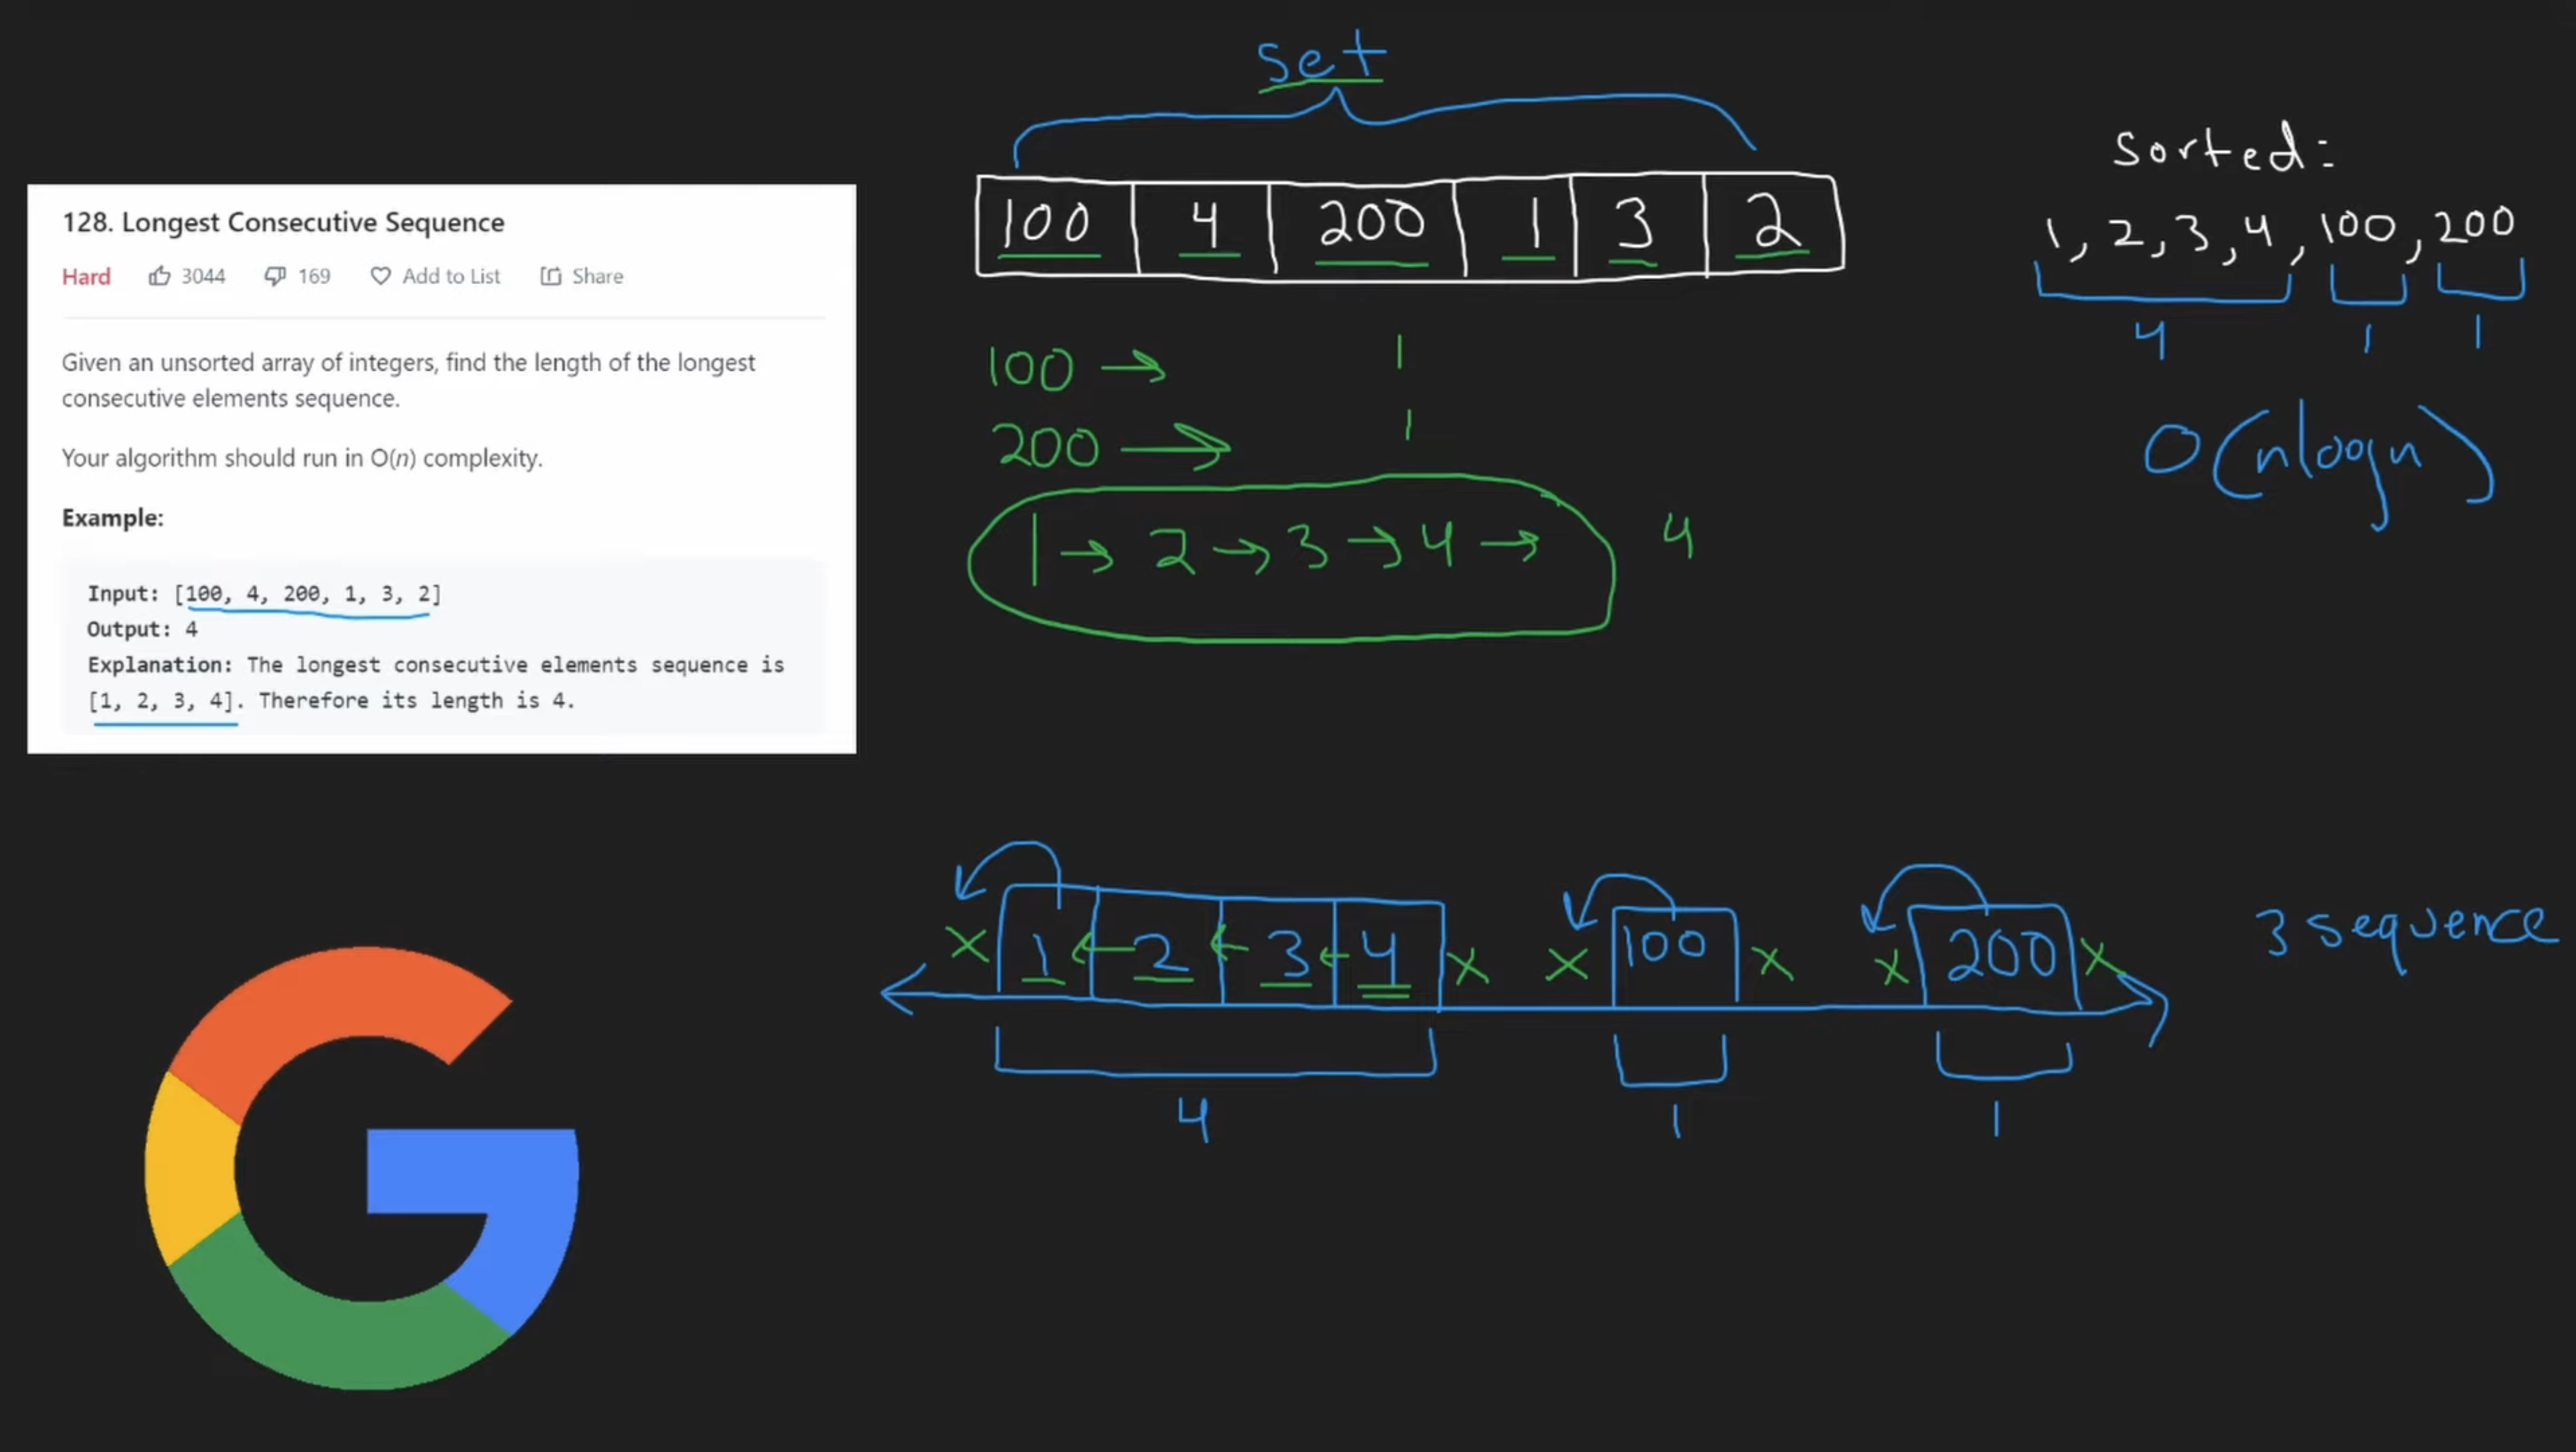 128. Longest Consecutive Sequence
Hard 3044 169 Add to List Share
Given an unsorted array of integers, find the length of the longest
consecutive elements sequence.
Your algorithm should run in O(n) complexity.
Example:
Input: [100, 4, 200, 1, 3, 2]
Output: 4
Explanation: The longest consecutive elements sequence is
[1, 2, 3, 4]. Therefore its length is 4.
set
100 4 200 1 3 2
100 → 1
200 → 1
1 → 2 → 3 → 4 → 4
Sorted:
1, 2, 3, 4, 100, 200
4 1 1
O(nlogn)
x 1 ← 2 ← 3 ← 4 x x 100 x x 200 x
4 1 1
3 sequence
G